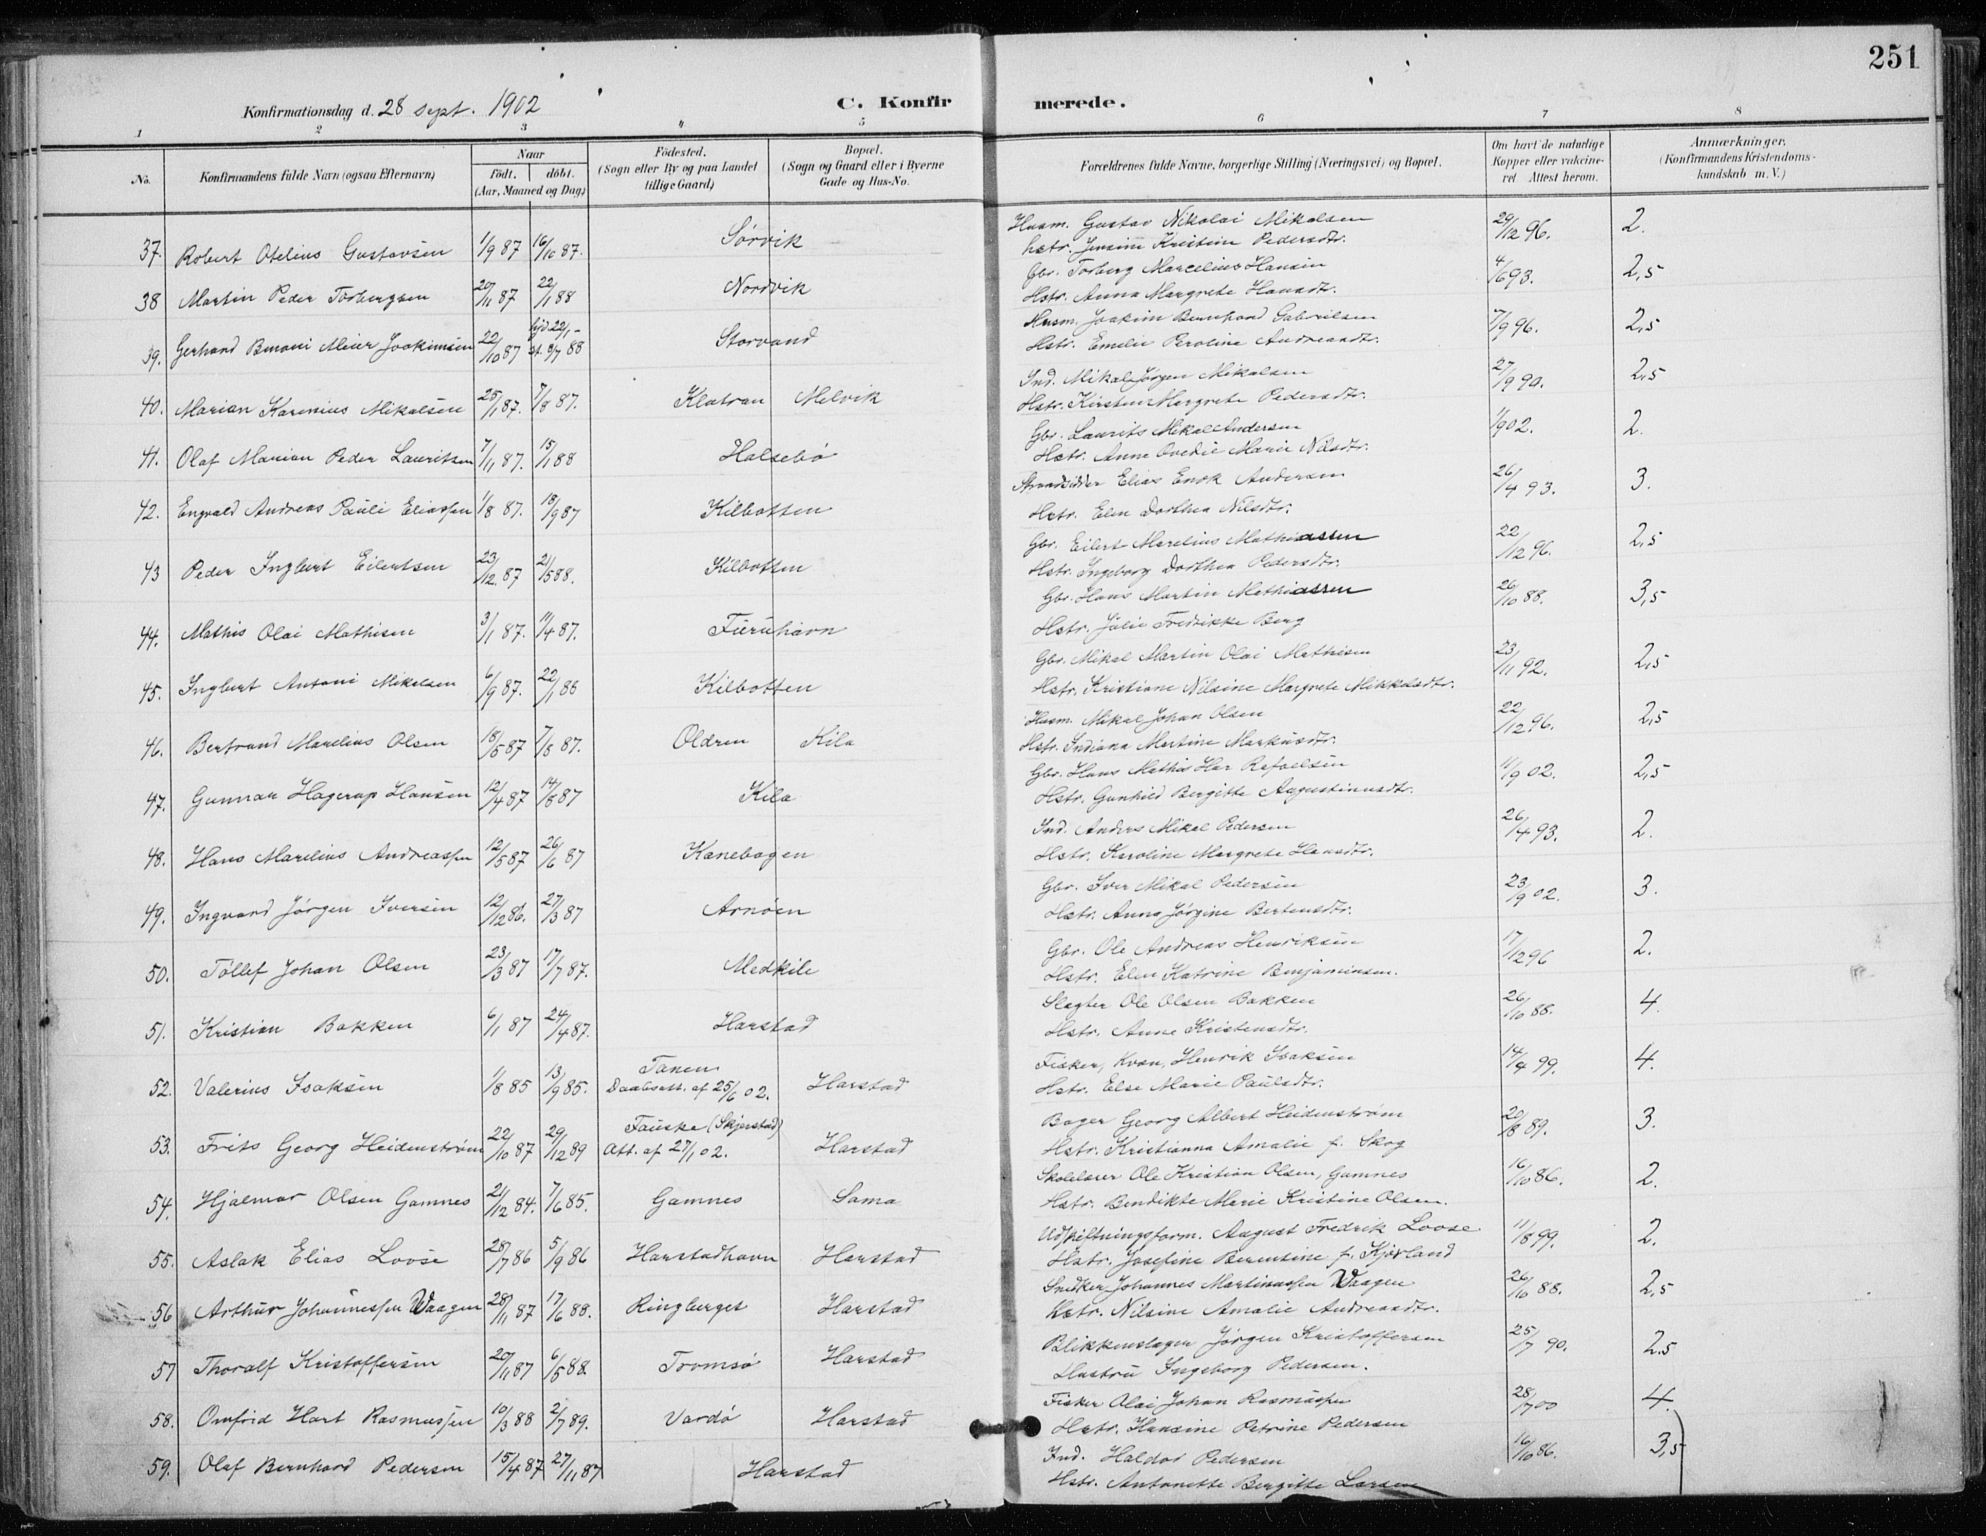 251
Konfirmationsdag d. 28 sept. 1902
C. Konfir merede.
1 2 3 4 5 6 7 8
No. Konfirmandens fulde Navn (ogsaa Efternavn)
Naar født. døbt. (Aar, Maaned og Dag)
Fødested. (Sogn eller By og paa Landet tillige Gaard)
Bopæl. (Sogn og Gaard eller i Byerne Gade og Hus-No.
Forældrenes fulde Navne, borgerlige Stilling (Næringsvei) og Bopæl.
Om havt de naturlige Kopper eller vaccineret. Attest herom.
Anmærkninger. (Konfirmandens Kristendomskundskab m. V.)
37. Robert Otelius Gustavsen 1/9 87 16/10 87. Sørvik Husm. Gustav Nikolai Mikalsen 29/12 96. 2.
hstr. Jensine Kristine Pedersdtr.
38 Martin Peder Torbergsen 20/11 87 22/1 88 Nordvik Gbr. Torberg Marcelius Hansen 4/6 93. 2,5
Hstr. Anna Margrete Hansdtr.
39. Gerhard Benoni Meier Joakimsen 22/10 87 hjd 22/1 - st. 8/7 88 Storvand Husm. Joakim Bernhard Gabrielsen 7/9 96. 2,5
Hstr. Emelie Peroline Andreasdtr.
40. Marian Karenius Mikalsen 25/1 87. 7/8 87. Klatran Melvik Ind. Mikal Jørgen Mikalsen 27/9 90. 2,5
Hstr. Kirsten Margrete Pedersdtr.
41. Olaf Marian Peder Lauritsen 7/11 87. 15/1 88 Halsebø Gbr. Laurits Mikal Andersen 1/9 02. 2.
Hstr. Anne Ovedie Marie Nilsdtr.
42. Engvald Andreas Pauli Eliassen 1/8 87. 18/9 87 Kilbotten Strandsidder Elias Enok Andersen 26/4 93. 3.
Hstr. Elen Dorthea Nilsdtr.
43 Peder Ingbert Eilertsen 23/12. 87 2/5 88. Kilbotten Gbr. Eilert Marelius Mathiassen 22/12 96. 2,5
Hstr. Ingeborg Dorthea Pedersdtr.
44. Mathis Olai Mathisen 3/1 87. 11/4 87. Furuhavn Gbr. Hans Martin Mathiassen 26/10 88. 3,5
Hstr. Julie Fredrikke Berg
45. Ingbert Antoni Mikalsen 6/9 87. 22/1 88 Kilbotten Gbr. Mikal Martin Olai Mathisen 23/11 92. 2,5
Hstr. Kristiane Nilsine Margrete Mikkelsdtr.
46. Bertrand Marelius Olsen 18/5 87 7/8 87. Oldren Kila Husm. Mikal Johan Olsen 22/12 96. 2,5
Hstr. Indiana Martine Markusdtr.
47. Gunnar Hagerup Hansen 12/4 87 14/8 87 Kila Gbr. Hans Mathis Har Rafaelsen 11/9 02. 2,5
Hstr. Gunhild Bergitte Augustinusdtr.
48. Hans Marelius Andreassen 12/5 87 26/6 87 Kanebogen Ind. Anders Mikal Pedersen 26/4 93. 2.
Hstr. Karoline Margrete Hansdtr.
49. Ingvard Jørgen Iversen 12/12 86. 27/3 87 Arnøen Gbr. Iver Mikal Pedersen 23/9 02. 3.
Hstr. Anna Jørgine Bertensdtr.
50. Tollef Johan Olsen 23/3 87 17/7 87. Medkile Gbr. Ole Andreas Henriksen 17/12 96 2.
Hstr. Elen Katrine Benjaminsen.
51. Kristian Bakken 6/1 87 24/4 87. Harstad Slagter Ole Olsen Bakken 26/10 88. 4.
Hstr. Anne Kristensdtr.
52. Valerius Isaksen 1/8 85 13/9 85. Tanen Daabsatt. af 25/6 02. Harstad Fisker, Kvæn, Henrik Isaksen 14/4 99. 4.
Hstr. Else Marie Paulsdtr.
53. Frits Georg Heidenstrøm 22/10 87 29/12 89 Fauske (Skjerstad) Att. af 27/1 02. Harstad Bager Georg Albert Heidenstrøm 20/8 89. 3.
Hstr. Kristianna Amalie f. Skog
54. Hjalmar Olsen Gamnes 21/12 84. 7/6 85. Gamnes Sama Skolelærer Ole Kristian Olsen, Gamnes 16/10 86. 2.
Hstr. Bendikte Marie Kristine Olsen.
55. Aslak Elias Loose 28/7 86 5/9 86 Harstadhavn Harstad Udskiltningsform. August Fredrik Loose 11/8 99. 2.
Hstr. Josefine Berentine f. Kjørland
56 Arthur Johannessen Vaagen 28/11 87 17/6 88. Ringberget Harstad Snedker Johannes Martinussen Vaagen 26/10 88. 2,5
hstr. Nilsine Amalie Andreasdtr.
57 Thoralf Kristoffersen 20/11 87 6/5 88. Tromsø Harstad Blikkenslager Jørgen Kristoffersen 25/7 90. 2.5
Hustru Ingeborg Pedersen.
58. Omfrid Hart Rasmussen 10/3 88 2/7 89. Vardø Harstad Fisker Olai Johan Rasmussen 28/7 00 4.
Hstr. Hansine Petrine Pedersen
59. Olaf Bernhard Pedersen 15/4 87 27/11 87 Harstad Ind. Haldor Pedersen 16/10 86. 3,5
Hstr. Antonette Bergitte Larsen